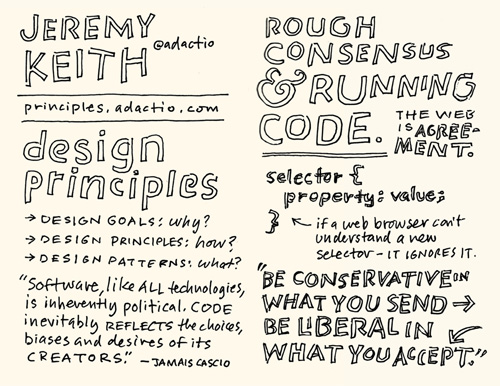 JEREMY
KEITH @adactio
principles.adactio.com
design
principles
→ DESIGN GOALS: why?
→ DESIGN PRINCIPLES: how?
→ DESIGN PATTERNS: what?
"Software, like ALL technologies,
is inherently political. CODE
inevitably REFLECTS the choices,
biases and desires of its
CREATORS." – JAMAIS CASCIO
ROUGH
CONSENSUS
& RUNNING
CODE.
THE WEB
IS AGREE-
MENT.
selector {
property: value;
}
← if a web browser can't
understand a new
selector – IT IGNORES IT.
"BE CONSERVATIVE IN
WHAT YOU SEND →
BE LIBERAL IN
WHAT YOU ACCEPT."